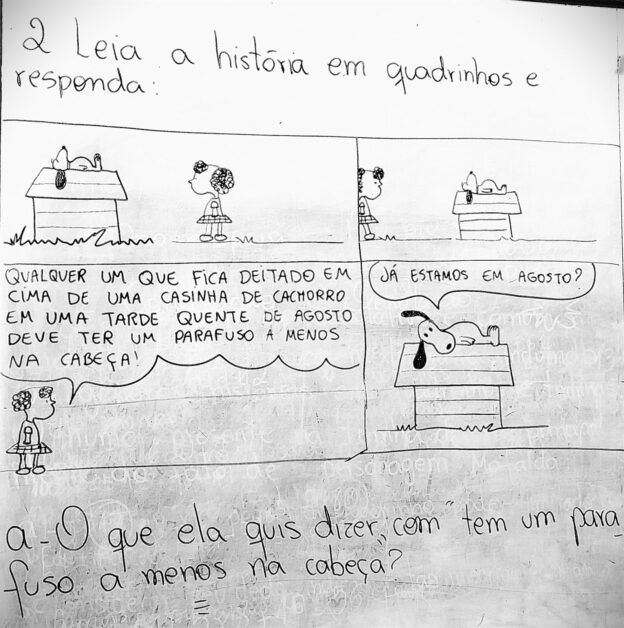 2 Leia a história em quadrinhos e
responda:
QUALQUER UM QUE FICA DEITADO EM
CIMA DE UMA CASINHA DE CACHORRO
EM UMA TARDE QUENTE DE AGOSTO
DEVE TER UM PARAFUSO A MENOS
NA CABEÇA!
JÁ ESTAMOS EM AGOSTO?
a-O que ela quis dizer, com "tem um para
fuso a menos na cabeça?